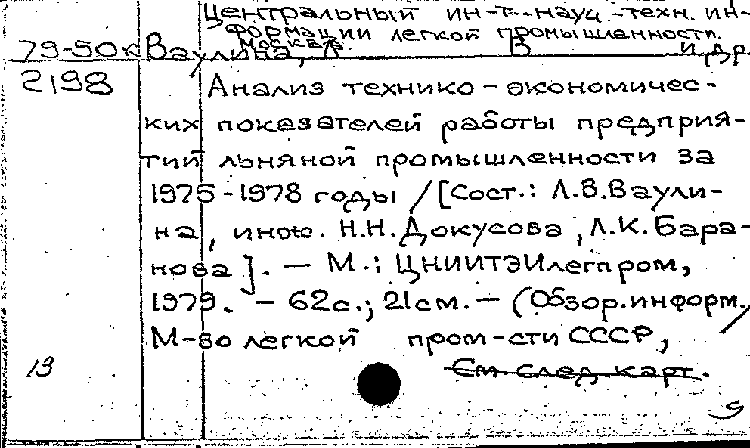 Центральный ин-т науч.-техн. ин-
формации легкой промышленности.
Москва.
79-50к Ваулина, Л. В. и др.
2198 Анализ технико-экономичес-
ких показателей работы предприя-
тий льняной промышленности за
1975-1978 годы / [Сост.: Л.В.Ваули-
на, инж. Н.Н.Докусова, Л.К.Бара-
нова]. — М.: ЦНИИТЭИлегпром,
1979. - 62с.; 21см. — (Обзор.информ./
М-во легкой пром-сти СССР,
13 См след. карт.
9